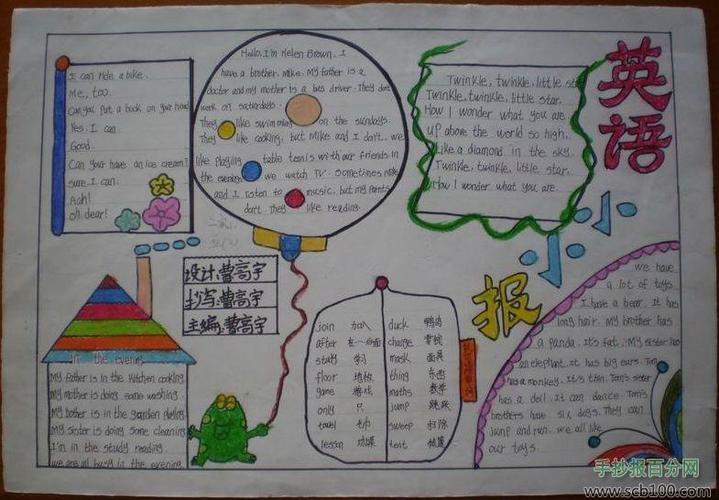 I can ride a bike.
Me, too.
Can you put a book on your head
Yes. I can.
Good.
Can your have an ice cream?
sure. I can.
Aah!
oh dear!
Hello, I'm Helen Brown. I
have a brother. Mike. My father is a
doctor and my mother is a bus driver. They don't
work on saturdays.
They like swimming on the sundays.
They like cooking, but Mike and I don't. we
like playing table tennis with our friends. In
the evening we watch TV. Sometimes Mike
and I listen to music, but my parents
don't. They like reading.
Twinkle, twinkle, little star
Twinkle, twinkle, little star.
How I wonder what you are.
up above the world so high,
Like a diamond in the sky.
Twinkle, twinkle, little star.
How I wonder what you are.
英语
小小
报
设计:曹高宇
抄写:曹高宇
主编:曹高宇
join 加入 duck 鸭肉
after 在…后面 change
study 学习 mask 面具
floor 地板 thing 东西
game 游戏 maths 数学
only 只 jump 跳跃
towel 毛巾 sweep 扫除
lesson 功课 tent 帐篷
In the evening
My father is in the kitchen cooking
My mother is doing some washing.
My brother is in the garden playing
My sister is doing some cleaning.
I'm in the study reading.
we are all busy in the evening.
we have
a lot of toys.
I have a bear. It has
long hair. My brother has
a panda. It's fat. My sister has
an elephant. It has big ears. Tom
has a monkey. It's thin. Tom's sister
has a doll. It can dance. Tom's
brothers have six dogs. They can
jump and run. we all like
our toys.
手抄报百分网
www.scb100.com